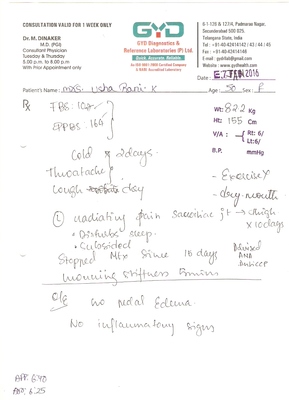 CONSULTATION VALID FOR 1 WEEK ONLY
Dr. M. DINAKER
M.D. (PG)
Consultant Physician
Tuesday & Thursday
5.00 p.m. to 8.00 p.m
With Prior Appointment only
GYD
GYD Diagnostics &
Reference Laboratories (P) Ltd.
Quick, Accurate, Reliable
An ISO 9001:2008 Certified Company
A NABL Accredited Laboratory
6-1-126 & 127/4, Padmarao Nagar,
Secunderabad 500 025.
Telangana State, India
Tel : +91-40-42414142 / 43 / 44 / 45
Fax : +91-40-42414148
E-mail : gydrllab@gmail.com
Website : www.gydhealth.com
Date : 7 JAN 2016
Patient's Name : Mrs. Usha Rani K Age : 50 Sex : F
Rx
FBS: 102
PPBS: 166
Wt: 82.2 Kg
Ht: 155 Cm
V/A : Rt: 6/
Lt: 6/
B.P. mmHg
Cold 2 days
Throatache
Cough dry
- Exercise X
- dry mouth
(L) radiating pain sacroiliac jt → thigh
x 10 days
• Disturbs sleep
• Subsided
Stopped Mtx since 15 days
Advised
AND
morning stiffness 5 mins
O/E No pedal Edema.
No inflammatory signs